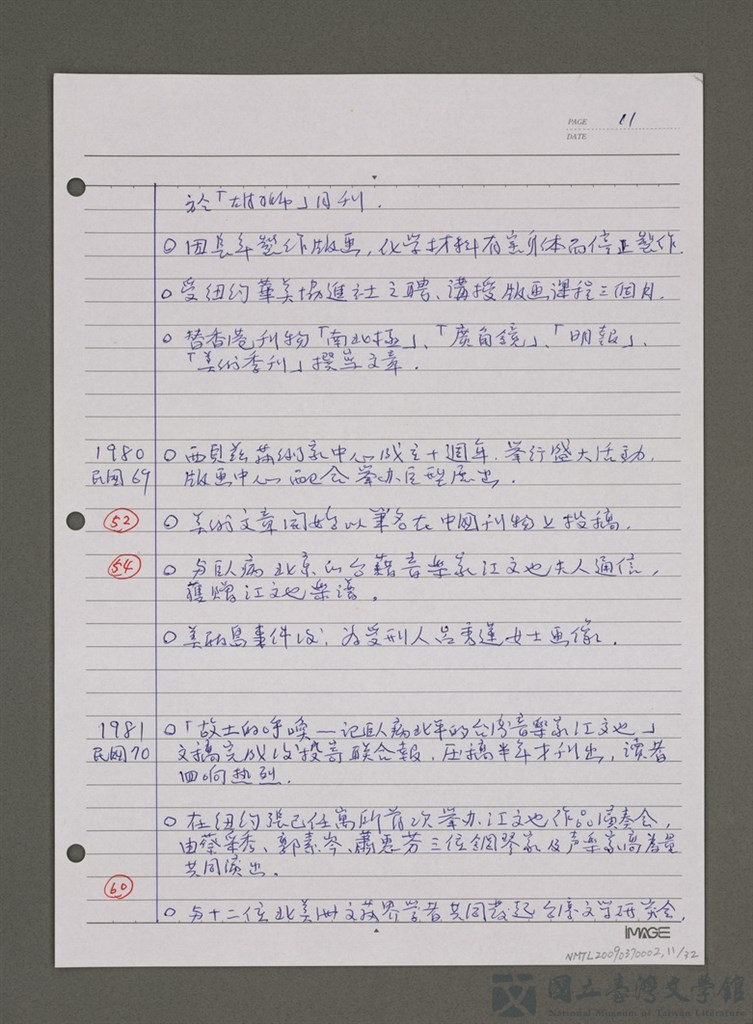 PAGE 11
DATE
於「雄獅」月刊.
○因長年製作版画,化学材料有害身体而停止製作.
○受紐約華美協進社之聘、講授版画課程三個月.
○替香港刊物「南北極」、「廣角鏡」、「明報」、
「美術季刊」撰寫文章.
1980 ○西貝芝藝術家中心成立十週年.举行盛大活動.
民國69 版画中心配合举办巨型展出.
52 ○美術文章開始以筆名在中國刊物上投稿.
54 ○与臥病北京的台籍音樂家江文也夫人通信,
獲贈江文也樂譜。
○美麗島事件後,为受刑人呂秀蓮女士画像.
1981 ○「故土的呼喚—記臥病北平的台湾音樂家江文也」
民國70 文稿完成後投寄联合報.压稿半年才刊出,读者
回响热烈.
○在紐約張己任寓所首次举办江文也作品演奏会,
由蔡采秀、郭素岑、蕭惠芳三位鋼琴家及声樂家高為
共同演出.
60
○与十二位北美洲文藝界学者共同發起台湾文学研究会.
iMAGE
NMTL20090370002,11/32
國立臺灣文學館
National Museum of Taiwan Literature